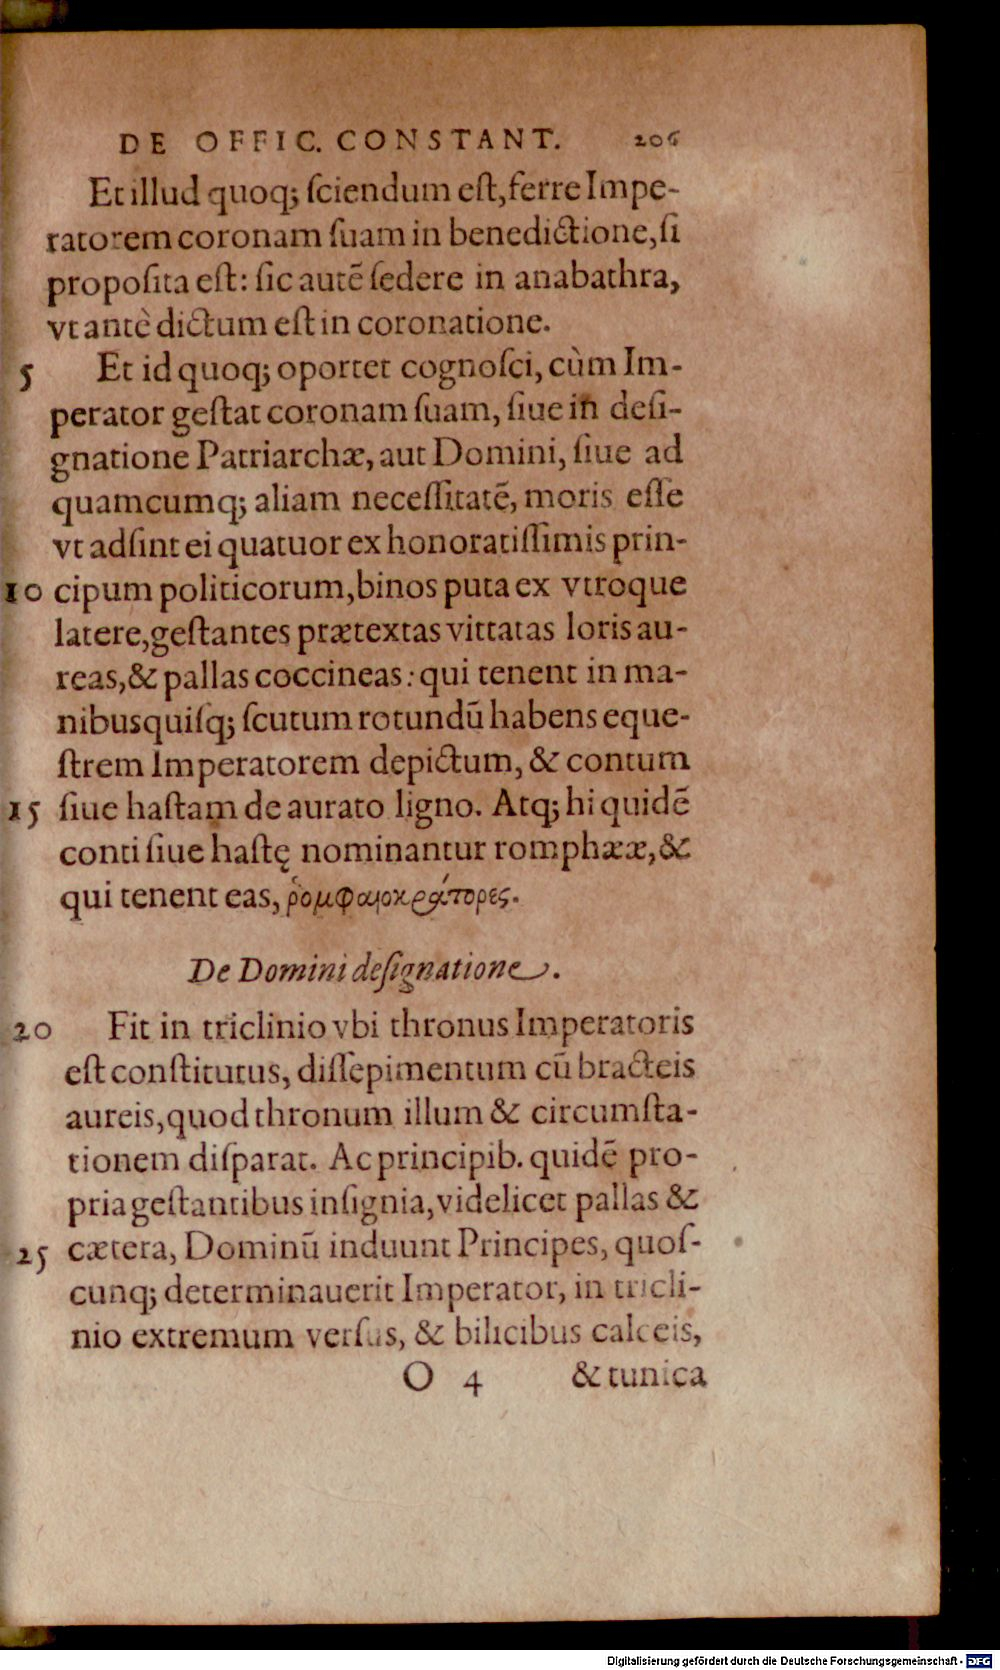 DE OFFIC. CONSTANT. 206
Et illud quoq; ſciendum eſt, ferre Impe-
ratorem coronam ſuam in benedictione, ſi
propoſita eſt: ſic autẽ ſedere in anabathra,
vt antè dictum eſt in coronatione.
5 Et id quoq; oportet cognoſci, cùm Im-
perator geſtat coronam ſuam, ſiue in deſi-
gnatione Patriarchæ, aut Domini, ſiue ad
quamcumq; aliam neceſſitatẽ, moris eſſe
vt adſint ei quatuor ex honoratiſſimis prin-
10 cipum politicorum, binos puta ex vtroque
latere, geſtantes prætextas vittatas loris au-
reas, & pallas coccineas: qui tenent in ma-
nibus quiſq; ſcutum rotundũ habens eque-
ſtrem Imperatorem depictum, & contum
15 ſiue haſtam de aurato ligno. Atq; hi quidẽ
conti ſiue haſtę nominantur romphææ, &
qui tenent eas, ῥομφαιοκράτορες.
De Domini deſignatione.
20 Fit in triclinio vbi thronus Imperatoris
eſt conſtitutus, diſſepimentum cũ bracteis
aureis, quod thronum illum & circumſta-
tionem diſparat. Ac principib. quidẽ pro-
pria geſtantibus inſignia, videlicet pallas &
25 cætera, Dominũ induunt Principes, quoſ-
cunq; determinauerit Imperator, in tricli-
nio extremum verſus, & bilicibus calceis,
O 4 & tunica
Digitalisierung gefördert durch die Deutsche Forschungsgemeinschaft - DFG